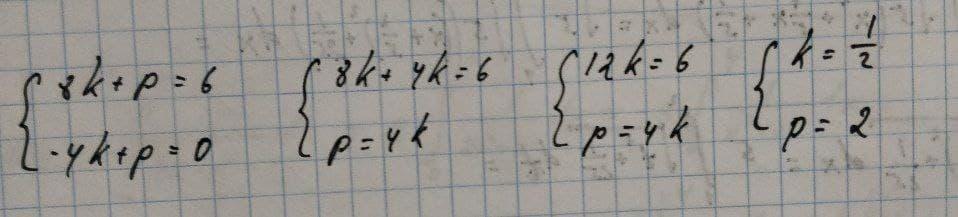 8k + p = 6
-4k + p = 0
8k + 4k = 6
p = 4k
12k = 6
p = 4k
k = 1/2
p = 2